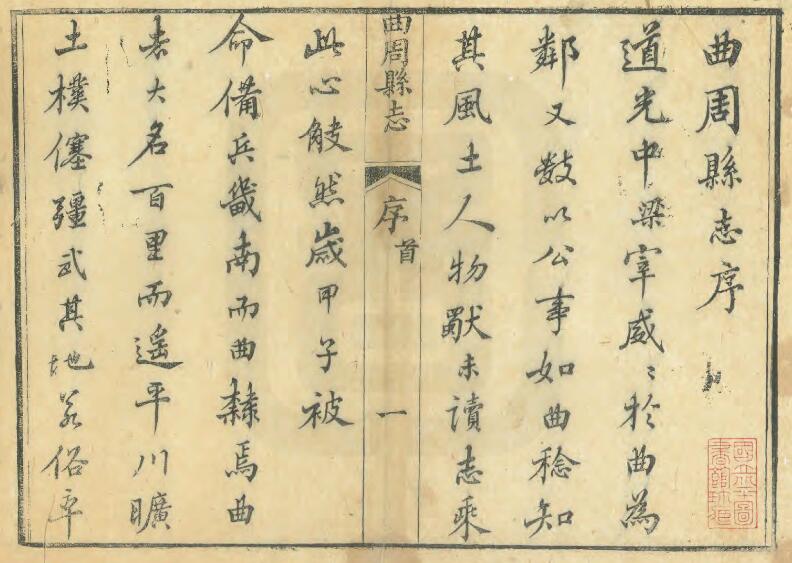 曲周縣志序
道光中梁宰威〻扵曲為
鄰又數以公事如曲稔知
其風土人物未讀志乘
曲周縣志
序
首
一
此心觖然歲甲子被
命備兵畿南而曲隸焉曲
去大名百里而遙平川曠
土樸僿疆武其地若俗率